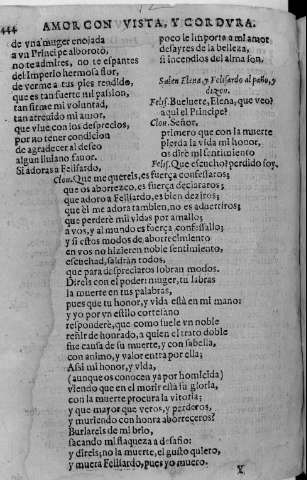 444 AMOR CON VISTA, Y CORDVRA.
de vna muger enojada
a vn Principe alborotò,
no te admires, no te espantes
del Imperio hermosa flor,
de verme a tus pies rendido,
que es tan fuerte mi passion,
tan firme mi voluntad,
tan atreuido mi amor,
que viue con los desprecios,
por no tener condicion
de agradecer al deseo
algun liuiano fauor.
Si adoras a Felisardo,
poco le importa a mi amor
desayres de la belleza,
si incendios del alma son.
Salen Elena, y Felisardo al paño, y
dizen.
Felis. Bueluete, Elena, que veo?
aqui el Principe?
Clon. Señor,
primero que con la muerte
pierda la vida mi honor,
os dirè mi sentimiento
Felis. Que escucho? perdido soy.
Clon. Que me quereis, es fuerça confessaros;
que os aborrezco, es fuerça declararos;
que adoro a Felisardo, es bien deziros;
que èl me adora tambien, no es aduertiros;
que perderè mil vidas por amallo;
a vos, y al mundo es fuerça confessallo;
y si estos modos de aborrecimiento
en vos no hizieren noble sentimiento,
escuchad, saldràn todos,
que para despreciaros sobran modos.
Direis con el poder: muger, tu labras
la muerte en tus palabras,
pues que tu honor, y vida està en mi mano:
y yo por vn estilo cortesano
responderè, que como suele vn noble
reñir de honrado, a quien el trato doble
fue causa de su muerte, y con sabella,
con animo, y valor entra por ella;
Assi mi honor, y vida,
(aunque os conocen ya por homicida)
viendo que en el morir està su gloria,
con la muerte procura la vitoria;
y que mayor que veros, y perderos,
y muriendo con honra aborreceros?
Burlareis de mi brio,
sacando mi flaqueza a desafio:
y direis; no la muerte, el gusto quiero,
y muera Felisardo, pues yo muero.
Y